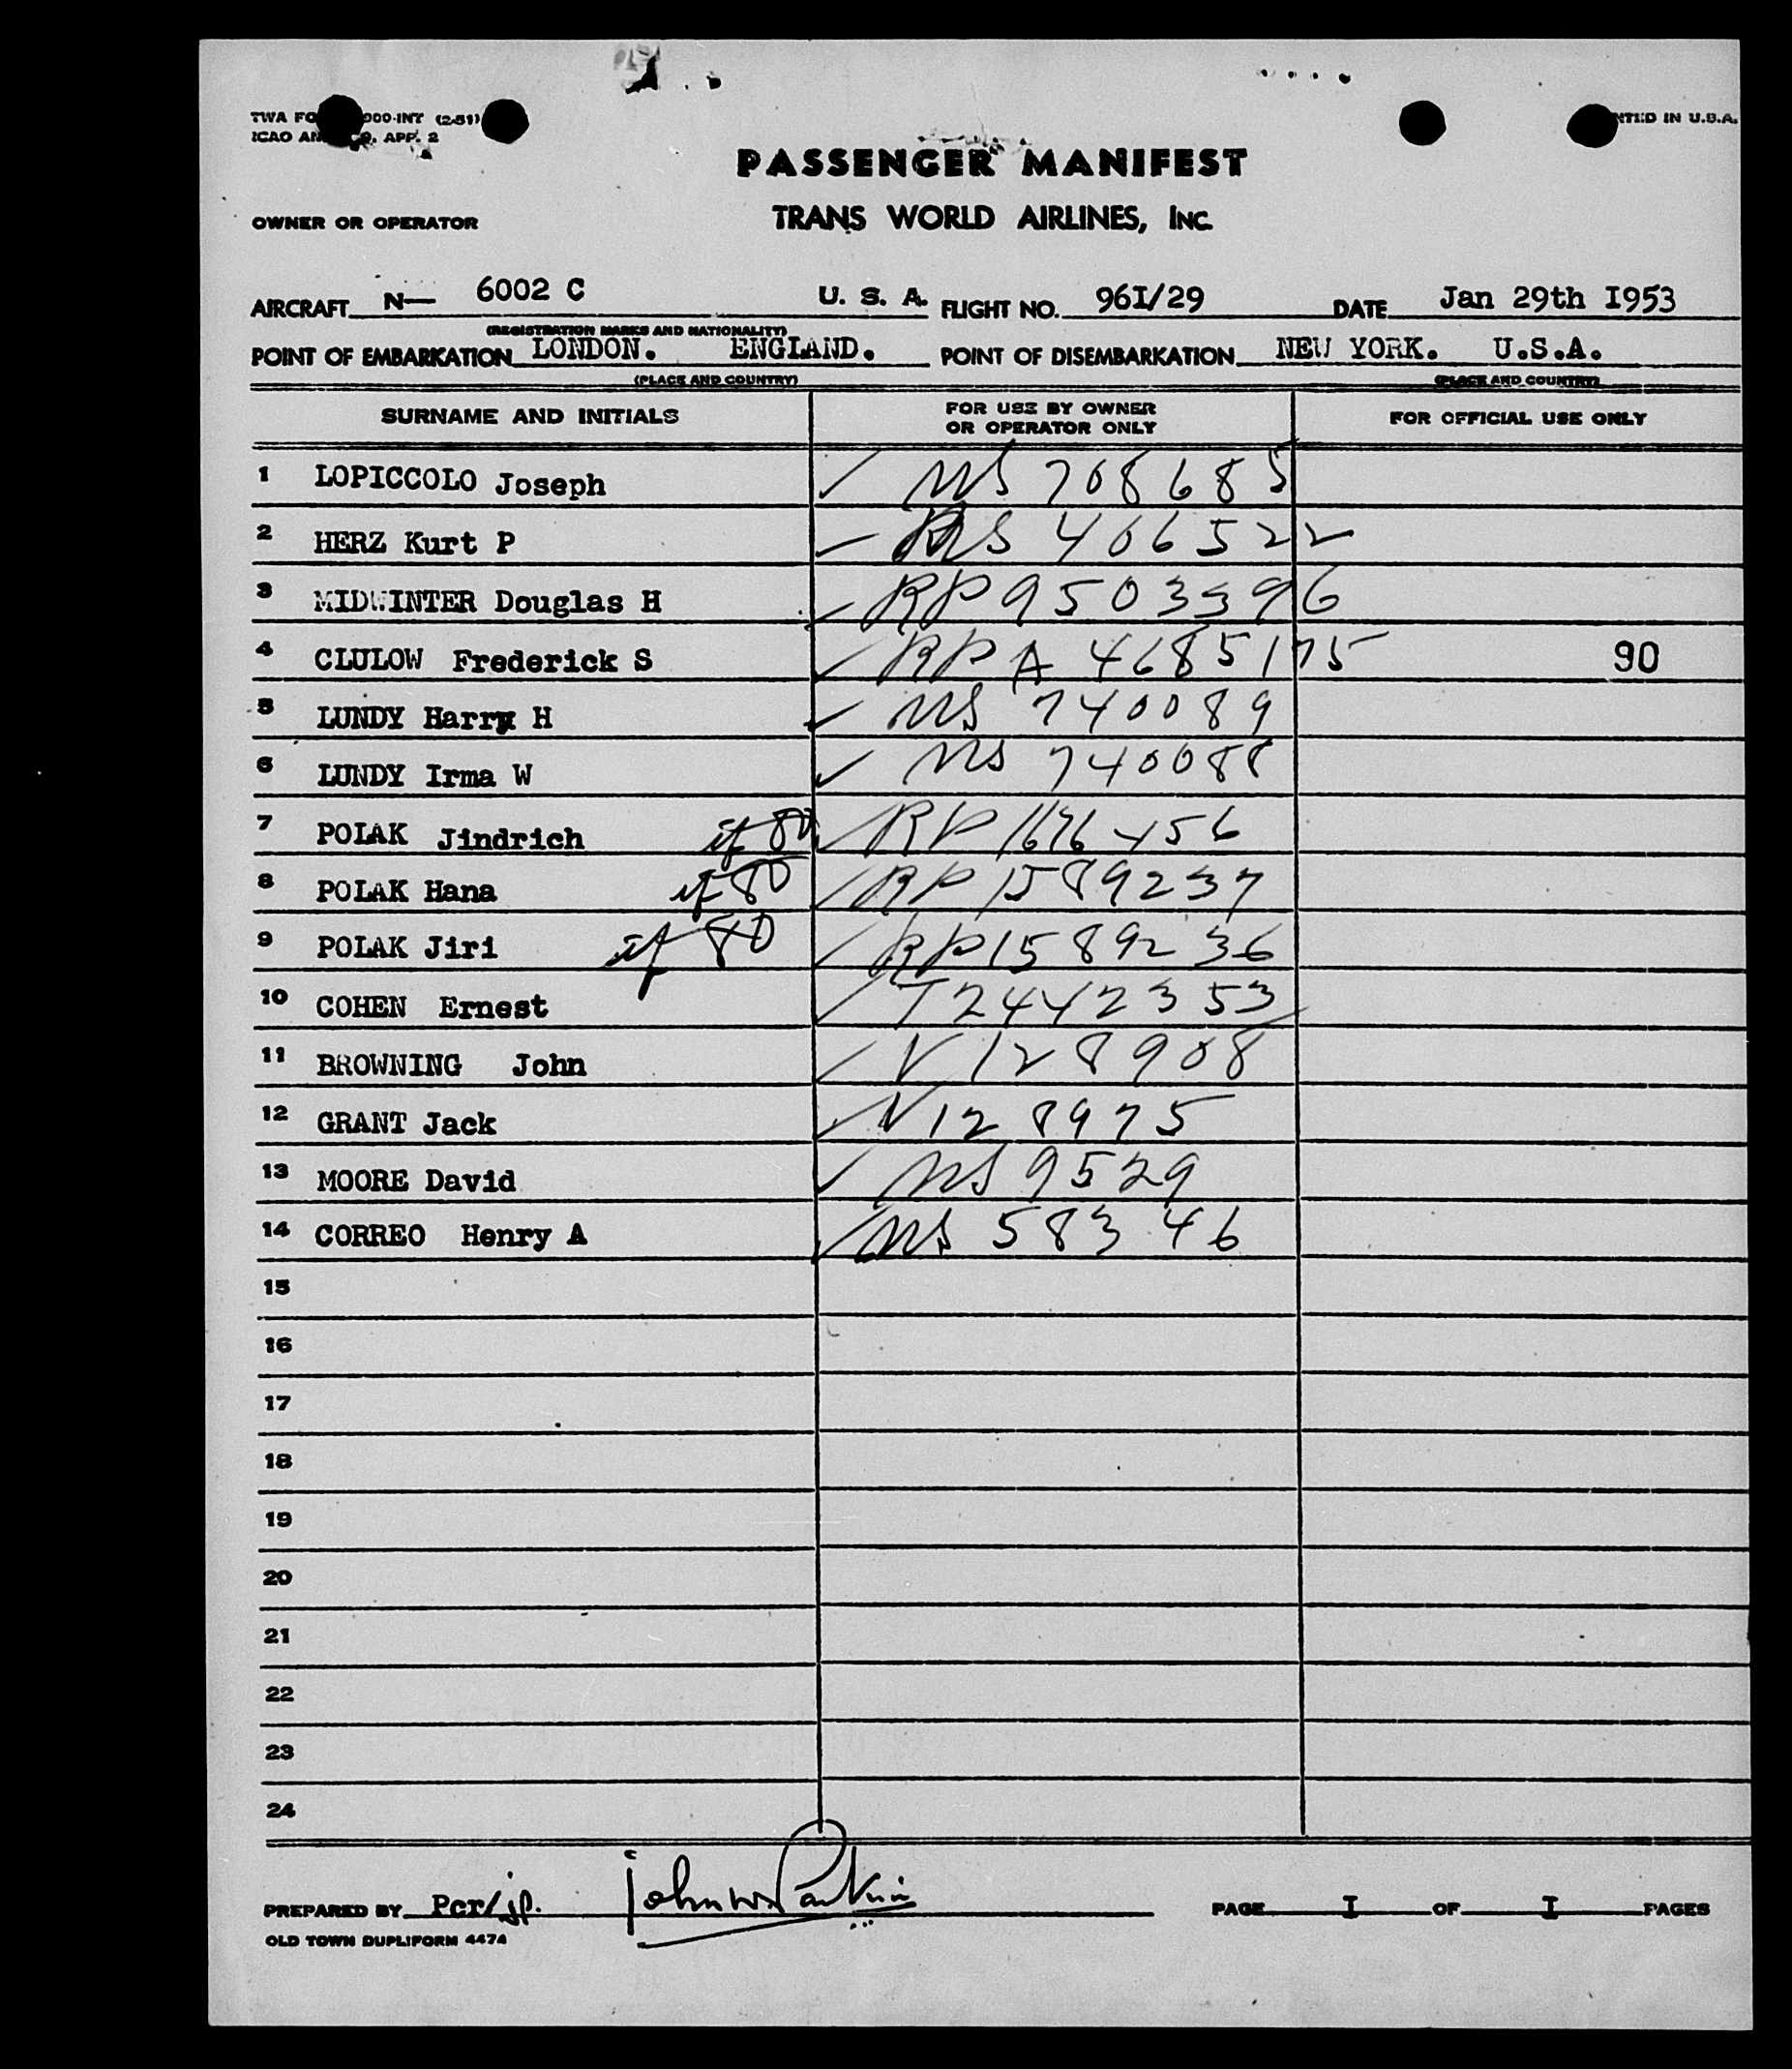 TWA FO 000-INT (2-51)
ICAO AN 9, APP. 2
NTED IN U.S.A.
PASSENGER MANIFEST
OWNER OR OPERATOR TRANS WORLD AIRLINES, INC.
AIRCRAFT N— 6002 C U. S. A. FLIGHT NO. 96I/29 DATE Jan 29th I953
(REGISTRATION MARKS AND NATIONALITY)
POINT OF EMBARKATION LONDON. ENGLAND. POINT OF DISEMBARKATION NEW YORK. U.S.A.
(PLACE AND COUNTRY) (PLACE AND COUNTRY)
SURNAME AND INITIALS FOR USE BY OWNER OR OPERATOR ONLY FOR OFFICIAL USE ONLY
1 LOPICCOLO Joseph ✓ NS 708685
2 HERZ Kurt P ✓ NS 406522
3 MIDWINTER Douglas H ✓ RP 9503396
4 CLULOW Frederick S ✓ RP A 4685175 90
5 LUNDY Harry H ✓ NS 740089
6 LUNDY Irma W ✓ NS 740088
7 POLAK Jindrich if 80 ✓ RP 1676456
8 POLAK Hana if 80 ✓ RP 1589237
9 POLAK Jiri if 80 ✓ RP 1589236
10 COHEN Ernest ✓ T2442353
11 BROWNING John ✓ V 128908
12 GRANT Jack ✓ V 128975
13 MOORE David ✓ NS 9529
14 CORREO Henry A ✓ NS 58346
15
16
17
18
19
20
21
22
23
24
PREPARED BY Pcr/jp. John W Parkin PAGE I OF I PAGES
OLD TOWN DUPLIFORM 4474